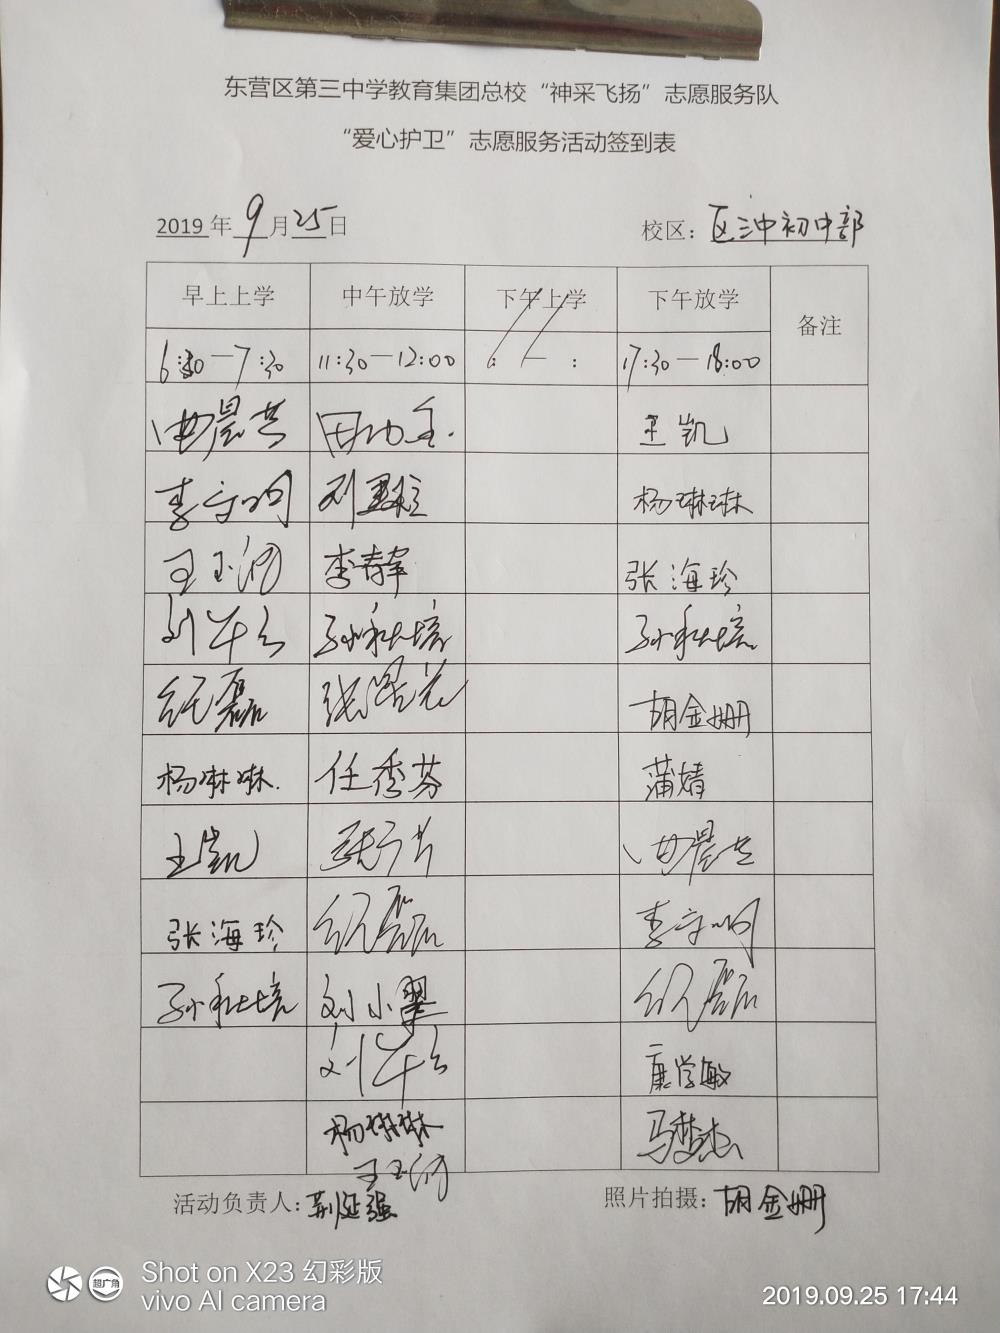 东营区第三中学教育集团总校“神采飞扬”志愿服务队
“爱心护卫”志愿服务活动签到表
2019年 9 月 25 日 校区：区三中初中部
早上上学 中午放学 下午上学 下午放学 备注
6:30—7:30 11:30—12:00 : — : 17:30—18:00
曲晨 王凯
李 刘 杨琳琳
王玉 李春 张海珍
刘 孙 培 孙 培
纪磊 张 胡金姗
杨琳琳. 任秀芬 蒲婧
王凯 曲晨
张海珍 纪磊 李
孙 培 刘小翠 纪磊
刘 康学敏
杨琳琳 马梦杰
王玉
活动负责人：荆延强 照片拍摄：胡金姗
超广角
Shot on X23 幻彩版
vivo AI camera
2019.09.25 17:44